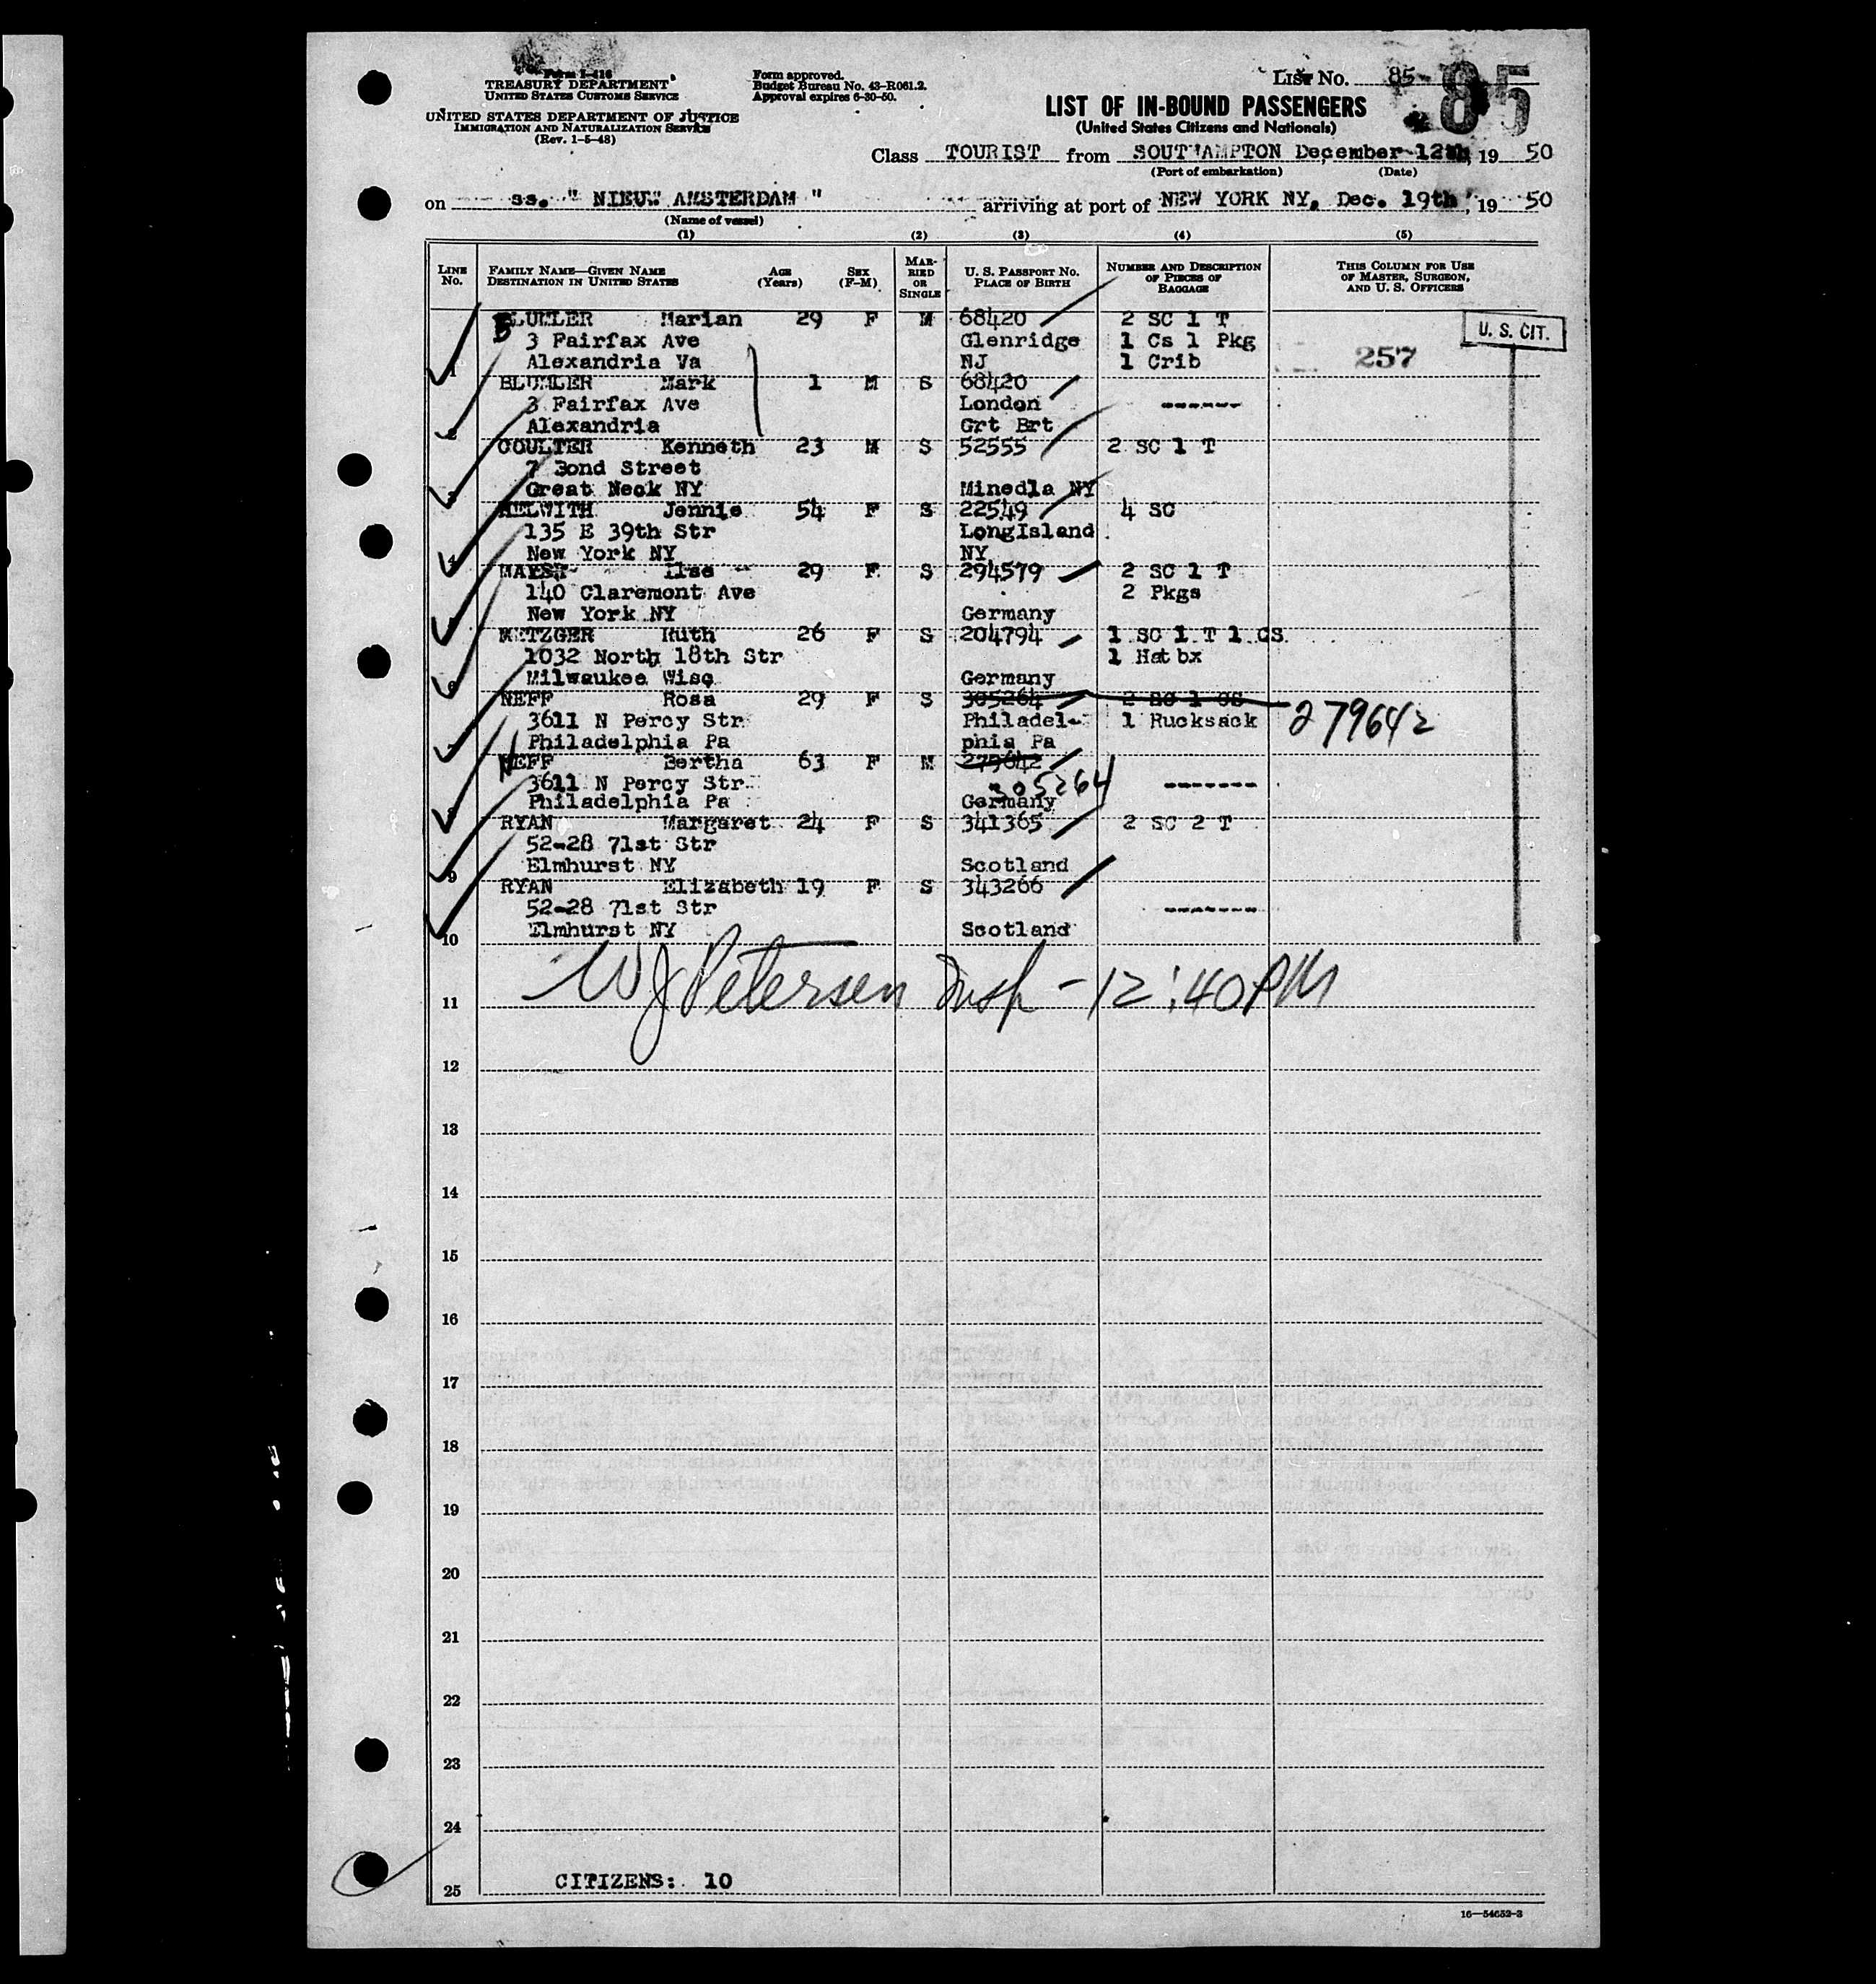 Form I-416
TREASURY DEPARTMENT
UNITED STATES CUSTOMS SERVICE
UNITED STATES DEPARTMENT OF JUSTICE
IMMIGRATION AND NATURALIZATION SERVICE
(Rev. 1-5-48)
Form approved.
Budget Bureau No. 43-R061.2.
Approval expires 6-30-50.
LIST No. 85
85
LIST OF IN-BOUND PASSENGERS
(United States Citizens and Nationals)
Class TOURIST from SOUTHAMPTON December 12th, 19 50
(Port of embarkation) (Date)
on ss. " NIEUW AMSTERDAM " arriving at port of NEW YORK NY, Dec. 19th, 19 50
(Name of vessel)
(1) (2) (3) (4) (5)
LINE No. FAMILY NAME—GIVEN NAME DESTINATION IN UNITED STATES AGE (Years) SEX (F-M) MARRIED OR SINGLE U. S. PASSPORT NO. PLACE OF BIRTH NUMBER AND DESCRIPTION OF PIECES OF BAGGAGE THIS COLUMN FOR USE OF MASTER, SURGEON, AND U. S. OFFICERS
BLUMLER Marian 29 F M 68420 2 SC 1 T U. S. CIT.
3 Fairfax Ave Glenridge 1 Cs 1 Pkg 257
1 Alexandria Va NJ 1 Crib
BLUMLER Mark 1 M S 68420
3 Fairfax Ave London -------
2 Alexandria Grt Brt
COULTER Kenneth 23 M S 52555 2 SC 1 T
7 Bond Street
3 Great Neck NY Minedla NY
HELWITH Jennie 54 F S 22549 4 SC
135 E 39th Str LongIsland
4 New York NY NY
Ilse 29 F S 294579 2 SC 1 T
140 Claremont Ave 2 Pkgs
5 New York NY Germany
METZGER Ruth 26 F S 204794 1 SC 1 T 1 CS
1032 North 18th Str 1 Hat bx
6 Milwaukee Wisc Germany
NEFF Rosa 29 F S 305264 2 SC 1 CS
3611 N Percy Str Philadel- 1 Rucksack 279642
7 Philadelphia Pa phia Pa
NEFF Bertha 63 F M 279642
3611 N Percy Str 305264 -------
8 Philadelphia Pa Germany
RYAN Margaret 24 F S 341365 2 SC 2 T
52-28 71st Str
9 Elmhurst NY Scotland
RYAN Elizabeth 19 F S 343266
52-28 71st Str -------
10 Elmhurst NY Scotland
11 W J Petersen Insp - 12:40 PM
12
13
14
15
16
17
18
19
20
21
22
23
24
25 CITIZENS: 10
16—54652-3